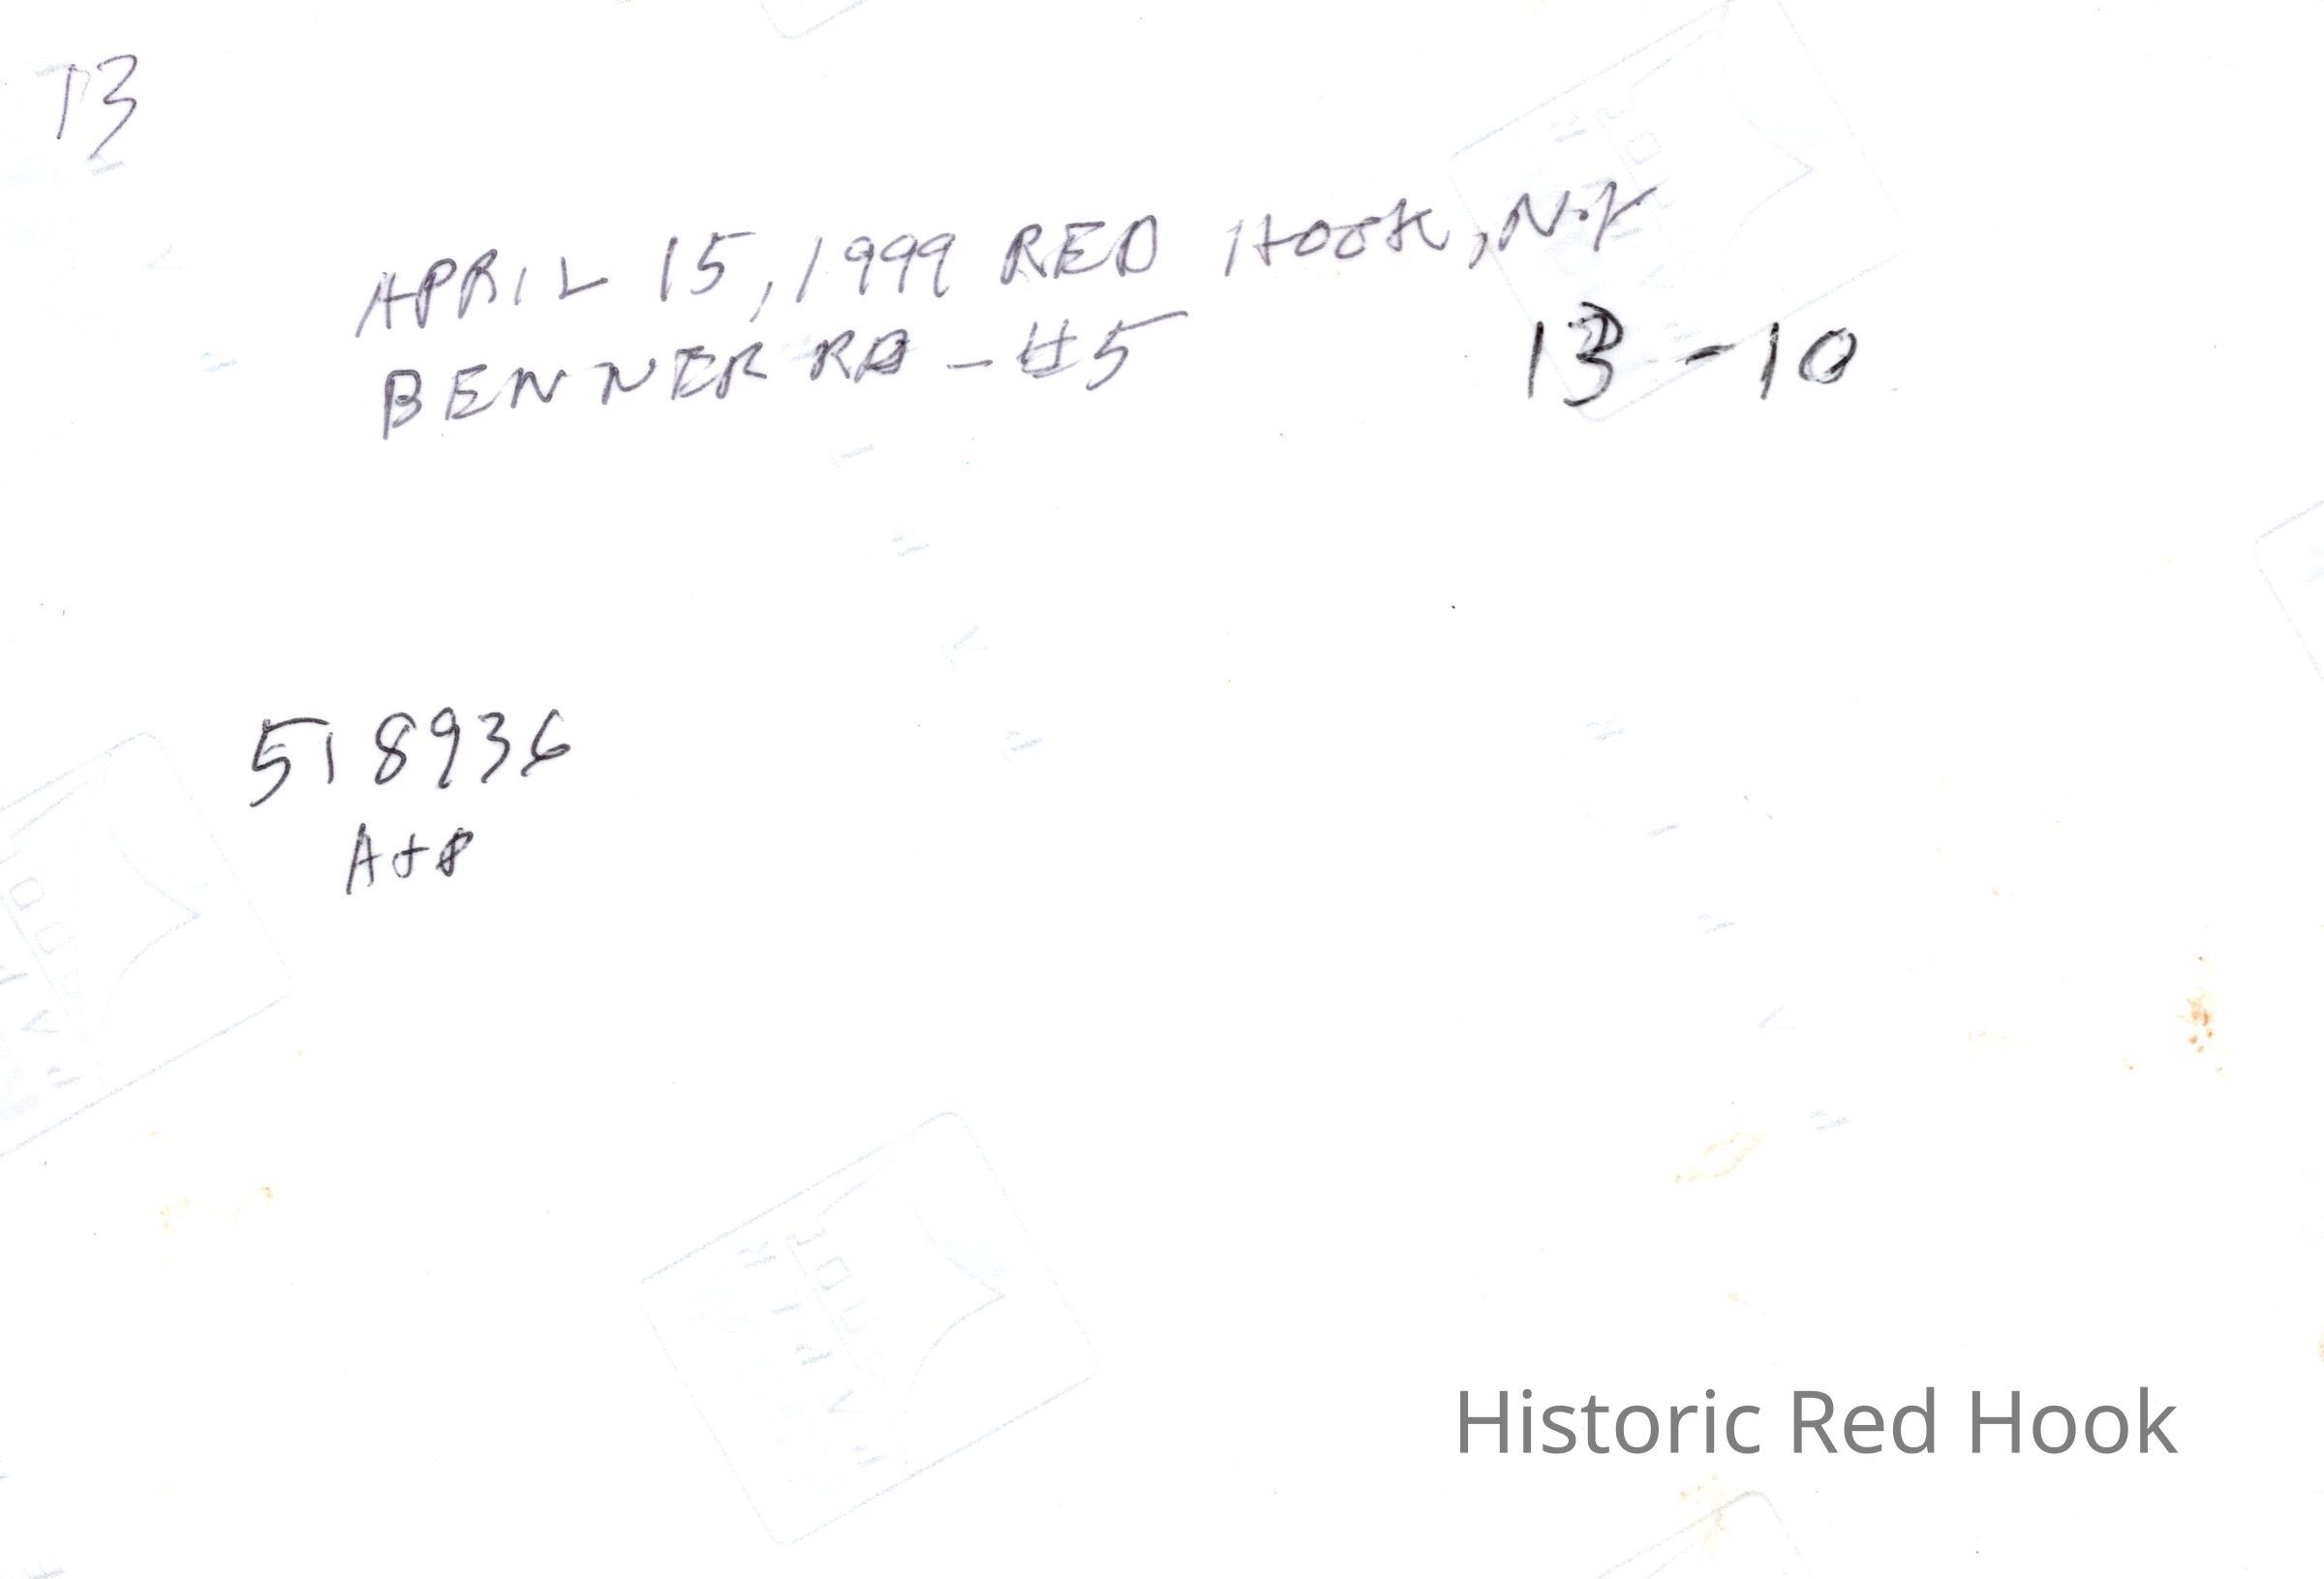 13
APRIL 15, 1999 RED HOOK, N.Y
BENNER RD - 45
13-10
518936
A+P
Historic Red Hook